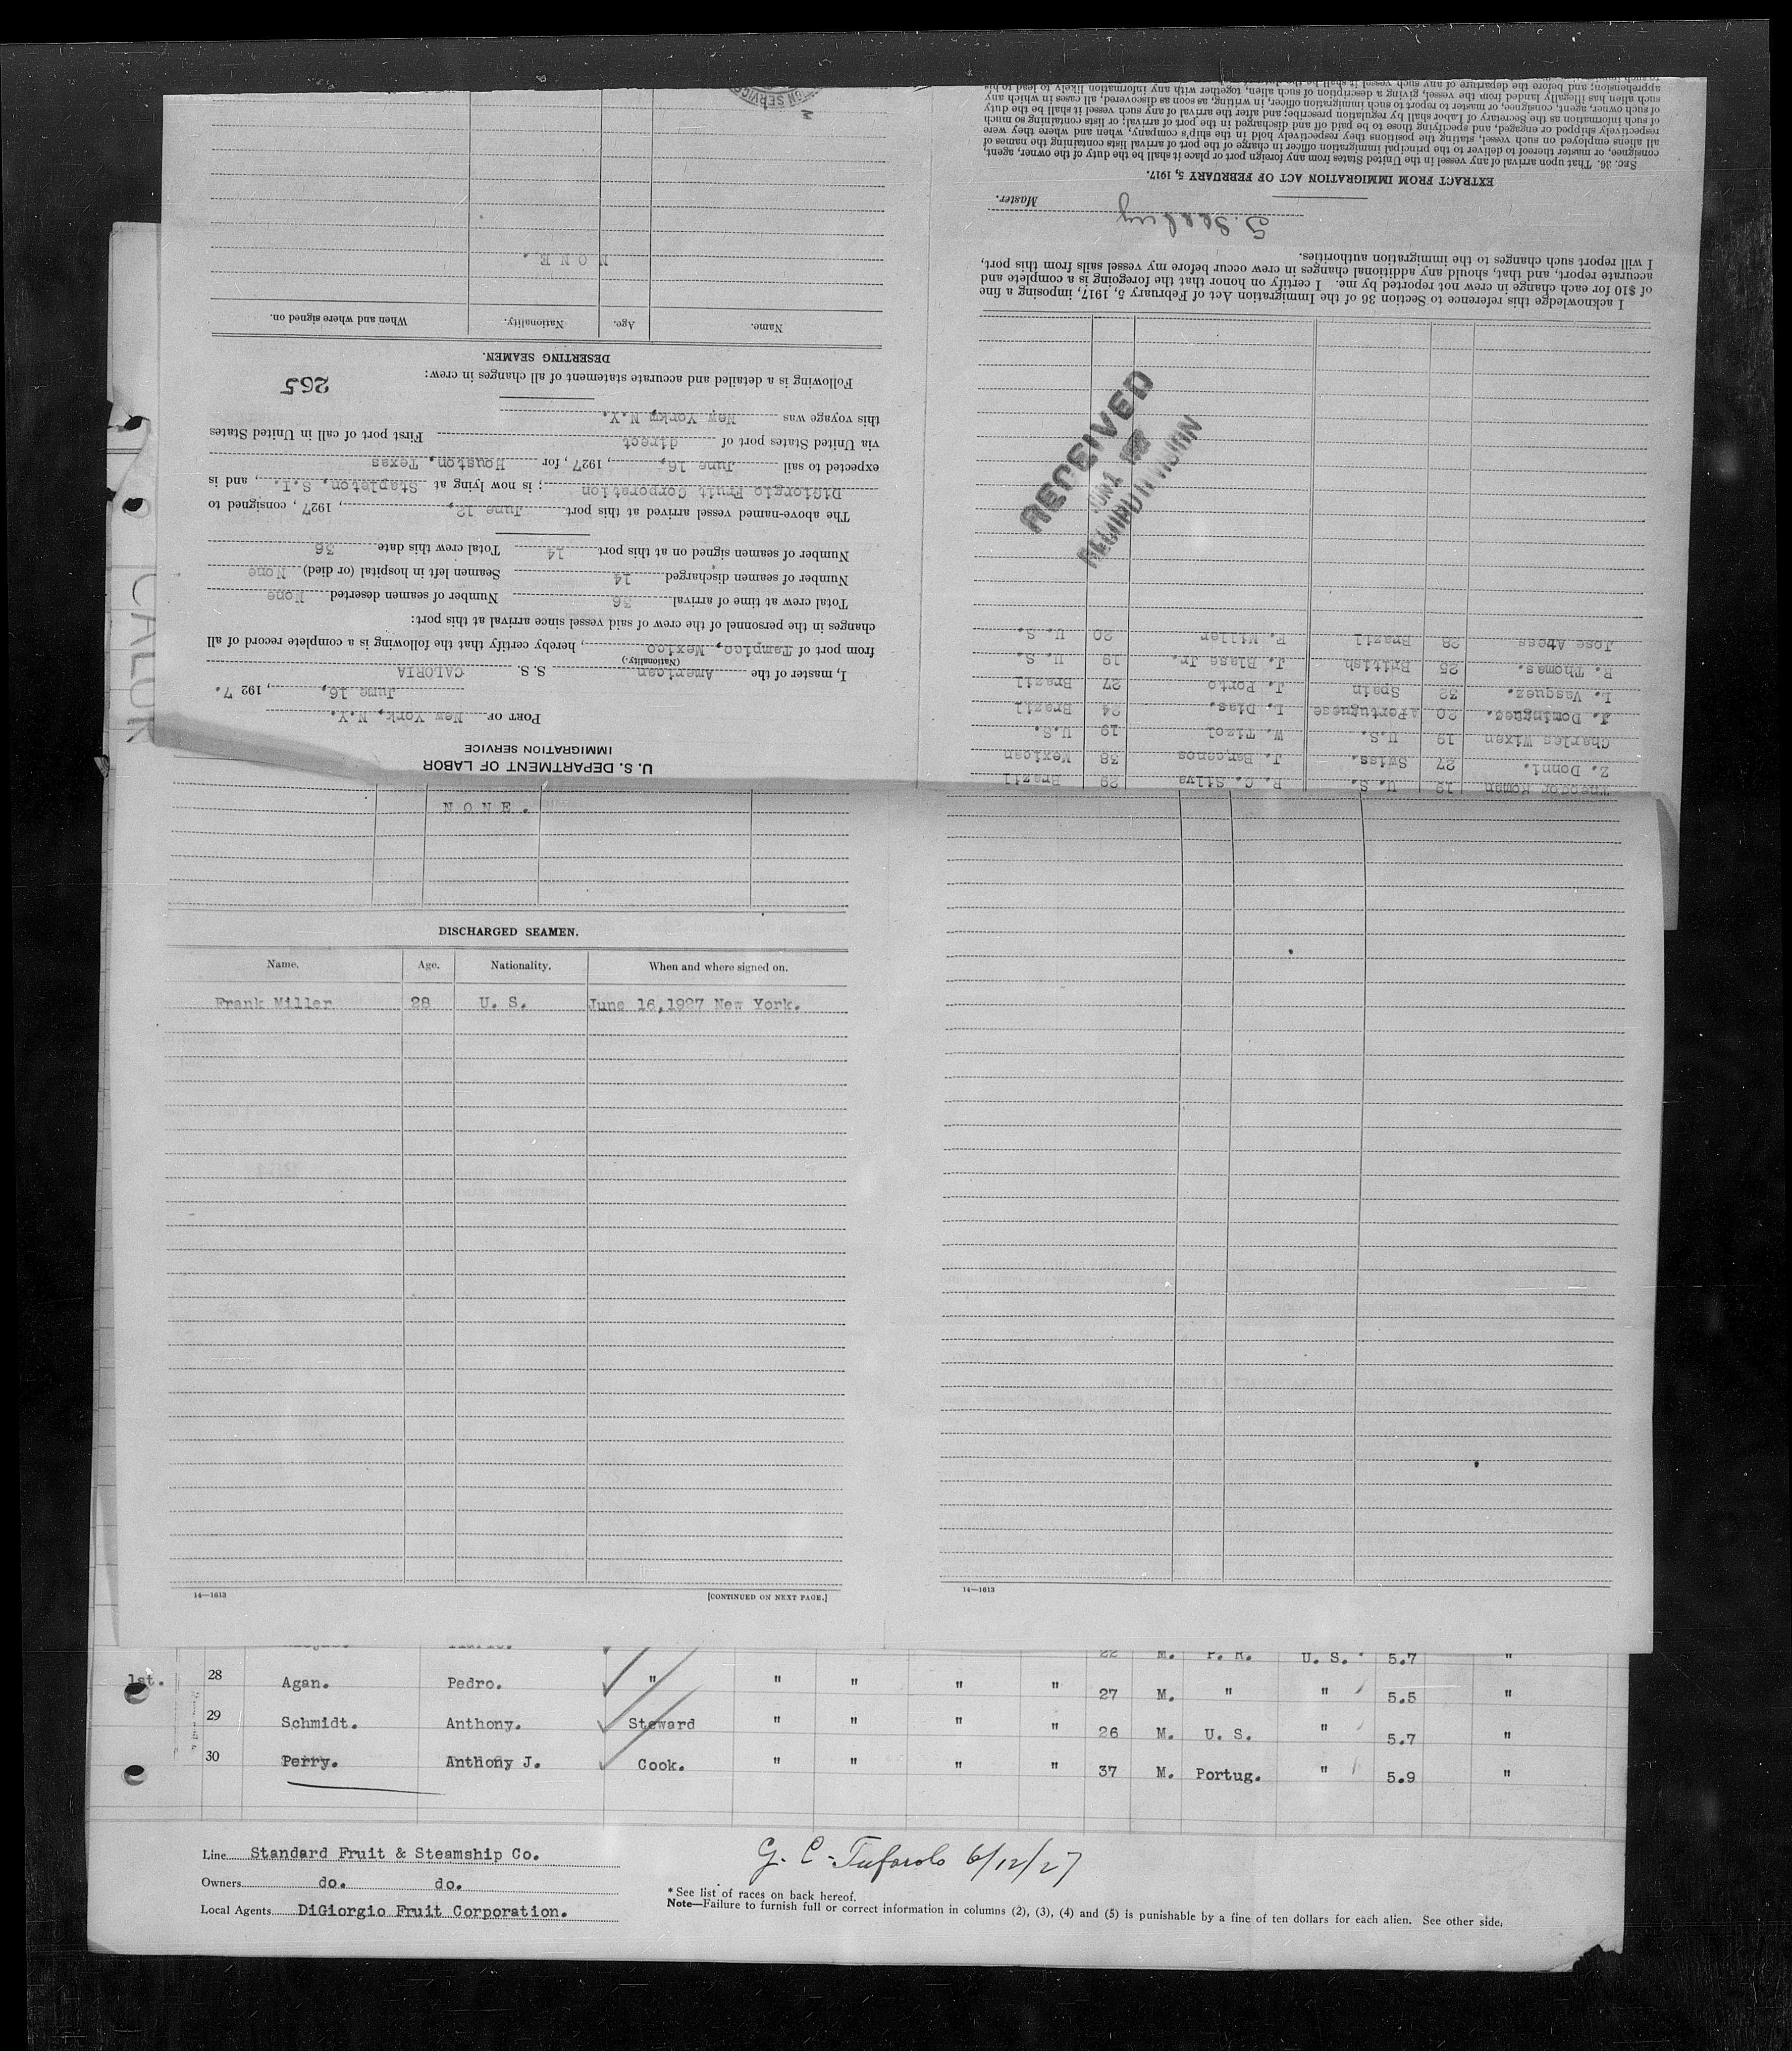 U. S. DEPARTMENT OF LABOR
IMMIGRATION SERVICE
PORT OF New York, N.Y.
June 16, 1927.
I, master of the American S. S. CALORIA
(Nationality.)
from port of Tampico, Mexico, hereby certify that the following is a complete record of all
changes in the personnel of the crew of said vessel since arrival at this port:
Total crew at time of arrival 36 Number of seamen deserted None
Number of seamen discharged 14 Seamen left in hospital (or died) None
Number of seamen signed on at this port 14 Total crew this date 36
The above-named vessel arrived at this port June 12, 1927, consigned to
DiGiorgio Fruit Corporation; is now lying at Stapleton, S.I., and is
expected to sail June 16, 1927, for Houston, Texas
via United States port of direct First port of call in United States
this voyage was New York, N.Y.
Following is a detailed and accurate statement of all changes in crew:
265
DESERTING SEAMEN.
Name. Age. Nationality. When and where signed on.
N O N E .
Theodor Roman 19 U. S. P. C. Silva 29 Brazil
Z. Donni. 27 Swiss. J. Barcenos 38 Mexican
Charles Wixen 19 U.S. W. Tizol 19 U.S.
J. Dominguez. 20 Portuguese L. Dias. 24 Brazil
L. Vasquez. 32 Spain J. Porto 27 Brazil
R. Thomas. 25 British J. Blase Jr. 19 U. S.
Jose Abess 28 Brazil F. Miller 20 U. S.
RECEIVED
JUN 1
RECORD DIVISION
I acknowledge this reference to Section 36 of the Immigration Act of February 5, 1917, imposing a fine
of $10 for each change in crew not reported by me. I certify on honor that the foregoing is a complete and
accurate report, and that, should any additional changes in crew occur before my vessel sails from this port,
I will report such changes to the immigration authorities.
Master.
EXTRACT FROM IMMIGRATION ACT OF FEBRUARY 5, 1917.
SEC. 36. That upon arrival of any vessel in the United States from any foreign port or place it shall be the duty of the owner, agent,
consignee, or master thereof to deliver to the principal immigration officer in charge of the port of arrival lists containing the names of
all aliens employed on such vessel, stating the positions they respectively hold in the ship's company, when and where they were
respectively shipped or engaged, and specifying those to be paid off and discharged in the port of arrival; or lists containing so much
of such information as the Secretary of Labor shall by regulation prescribe; and after the arrival of any such vessel it shall be the duty
of such owner, agent, consignee, or master to report to such immigration officer, in writing, as soon as discovered, all cases in which any
such alien has illegally landed from the vessel, giving a description of such alien, together with any information likely to lead to his
apprehension; and before the departure of any such vessel it shall be the duty of
N O N E .
DISCHARGED SEAMEN.
Name. Age. Nationality. When and where signed on.
Frank Miller 28 U. S. June 16,1927 New York.
14—1613 [CONTINUED ON NEXT PAGE.]
14—1613
22 M. P. R. U. S. 5.7 "
1st. 28 Agan. Pedro. " " " " " 27 M. " " 5.5 "
29 Schmidt. Anthony. Steward " " " " 26 M. U. S. " 5.7 "
30 Perry. Anthony J. Cook. " " " " 37 M. Portug. " 5.9 "
Line Standard Fruit & Steamship Co.
Owners do. do.
Local Agents DiGiorgio Fruit Corporation.
G. C. Tufarolo 6/12/27
* See list of races on back hereof.
Note—Failure to furnish full or correct information in columns (2), (3), (4) and (5) is punishable by a fine of ten dollars for each alien. See other side.